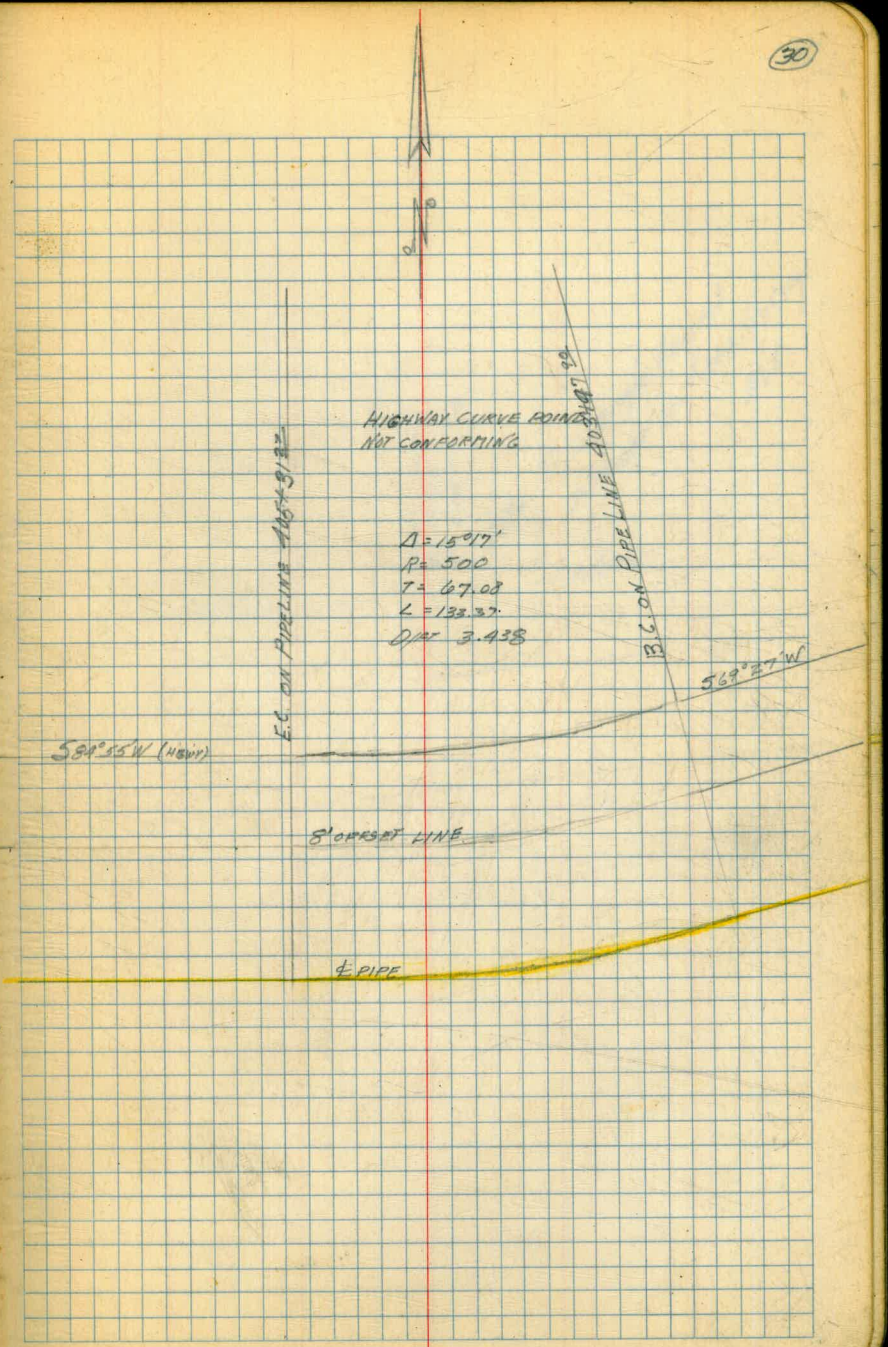 30
HIGHWAY CURVE POINTS
NOT CONFORMING
E.C. ON PIPELINE 405+31 27
B.C. ON PIPELINE 403+97 90
Δ = 15°17'
R = 500
T = 67.08
L = 133.37
D/FT 3.438
S69°27'W
S84°55'W (HGWY)
8' OFFSET LINE
℄ PIPE